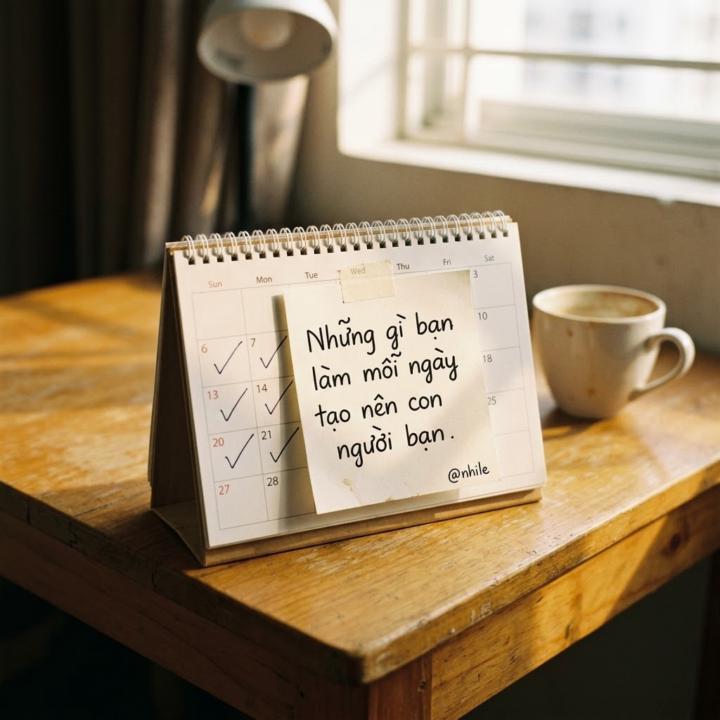 Sun Mon Tue Wed Thu Fri Sat
3
10
6 7
18
13 14
25
20 21
27 28
Những gì bạn
làm mỗi ngày
tạo nên con
người bạn.
@nhile